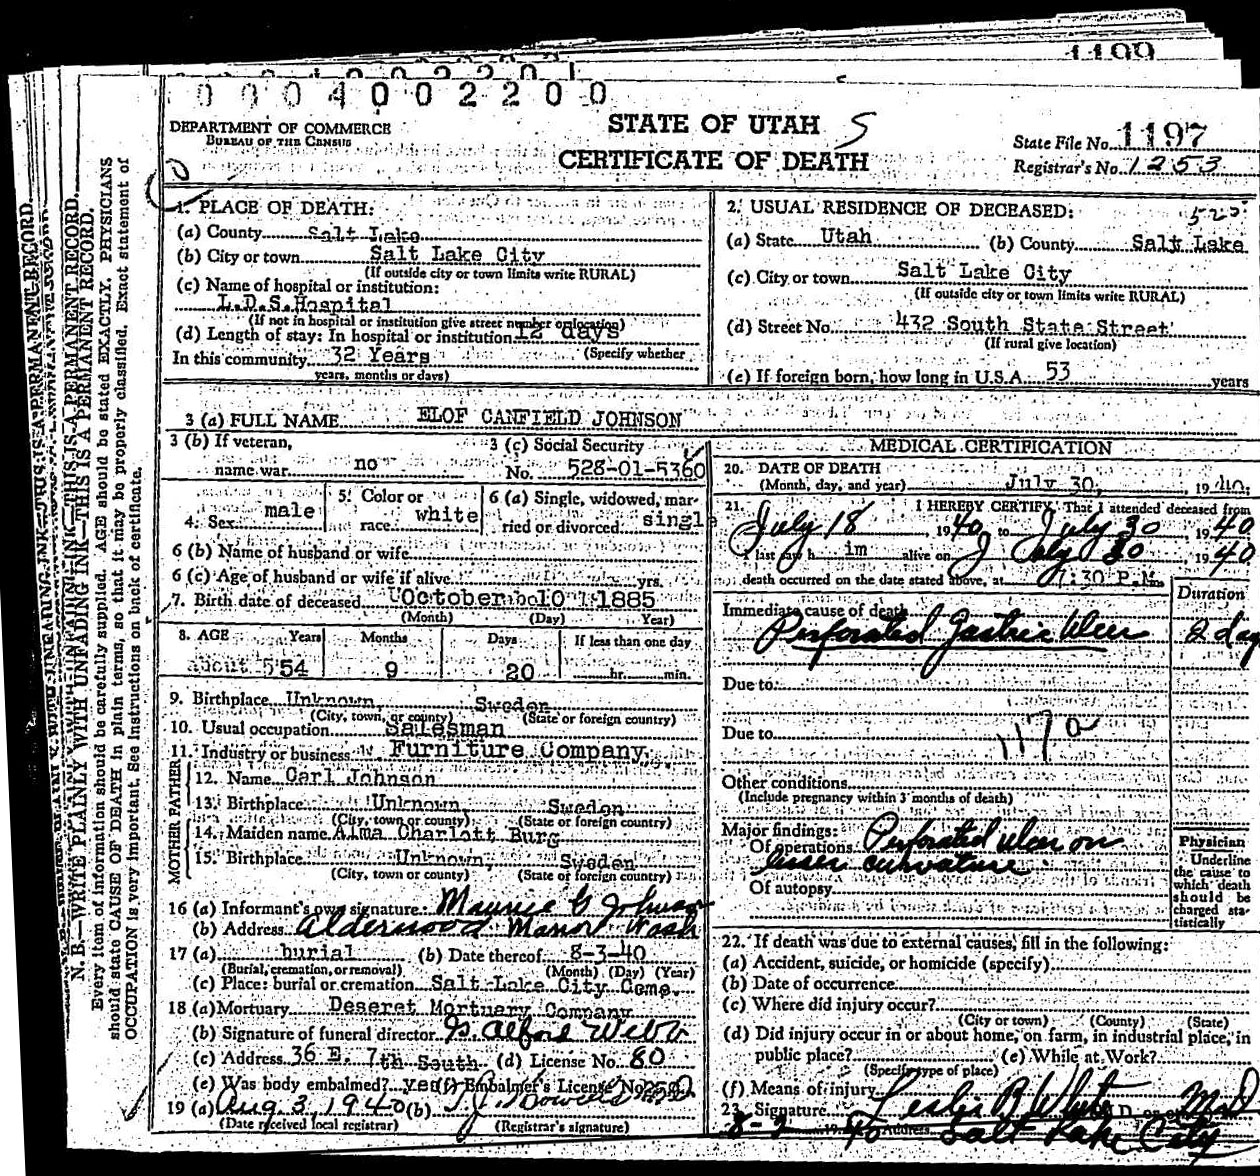 1199
0004002200
DEPARTMENT OF COMMERCE
BUREAU OF THE CENSUS
STATE OF UTAH S
CERTIFICATE OF DEATH
State File No. 1197
Registrar's No. 1253
1. PLACE OF DEATH:
(a) County Salt Lake
(b) City or town Salt Lake City
(If outside city or town limits write RURAL)
(c) Name of hospital or institution:
L.D.S.Hospital
(If not in hospital or institution give street number or location)
(d) Length of stay: In hospital or institution 12 days
(Specify whether
In this community 32 Years
years, months or days)
2. USUAL RESIDENCE OF DECEASED:
(a) State Utah (b) County Salt Lake
(c) City or town Salt Lake City
(If outside city or town limits write RURAL)
(d) Street No. 432 South State Street
(If rural give location)
(e) If foreign born, how long in U.S.A. 53 years
3 (a) FULL NAME ELOF CANFIELD JOHNSON
3 (b) If veteran,
name war no
3 (c) Social Security
No. 528-01-5360
4. Sex male
5. Color or
race white
6 (a) Single, widowed, mar-
ried or divorced single
6 (b) Name of husband or wife
6 (c) Age of husband or wife if alive yrs.
7. Birth date of deceased October 10 1885
(Month) (Day) Year)
8. AGE Years Months Days If less than one day
about 54 9 20 hr. min.
9. Birthplace Unknown Sweden
(City, town, or county) (State or foreign country)
10. Usual occupation Salesman
11. Industry or business Furniture Company
FATHER
12. Name Carl Johnson
13. Birthplace Unknown Sweden
(City, town or county) (State or foreign country)
MOTHER
14. Maiden name Alma Charlott Burg
15. Birthplace Unknown Sweden
(City, town or county) (State or foreign country)
16 (a) Informant's own signature: Maurice G Johnson
(b) Address Alderwood Manor Wash
17 (a) burial (b) Date thereof 8-3-40
(Burial, cremation, or removal) (Month) (Day) (Year)
(c) Place: burial or cremation Salt Lake City Cem.
18 (a) Mortuary Deseret Mortuary Company
(b) Signature of funeral director Alford Webb
(c) Address 36 E. 7th South (d) License No. 80
(e) Was body embalmed? yes (f) Embalmer's License No.
19 (a) Aug 3, 1940 (b)
(Date received local registrar) (Registrar's signature)
MEDICAL CERTIFICATION
20. DATE OF DEATH
(Month, day, and year) July 30, 1940
21. I HEREBY CERTIFY, That I attended deceased from
July 18, 1940 to July 30, 1940
I last saw him alive on July 30 1940
death occurred on the date stated above, at 7:30 P.M.
Duration
Immediate cause of death
Perforated Gastric Ulcer 2 day
Due to
Due to 117a
Other conditions
(Include pregnancy within 3 months of death)
Major findings:
Of operations Perforated ulcer on
lesser curvature
Of autopsy
Physician
Underline
the cause to
which death
should be
charged sta-
tistically
22. If death was due to external causes, fill in the following:
(a) Accident, suicide, or homicide (specify)
(b) Date of occurrence
(c) Where did injury occur?
(City or town) (County) (State)
(d) Did injury occur in or about home, on farm, in industrial place, in
public place? (e) While at Work?
(Specify type of place)
(f) Means of injury
23. Signature Leslie R White MD
8-2 1940 Address Salt Lake City
N. B.—WRITE PLAINLY WITH UNFADING INK—THIS IS A PERMANENT RECORD.
Every item of information should be carefully supplied. AGE should be stated EXACTLY. PHYSICIANS
should state CAUSE OF DEATH in plain terms, so that it may be properly classified. Exact statement of
OCCUPATION is very important. See instructions on back of certificate.